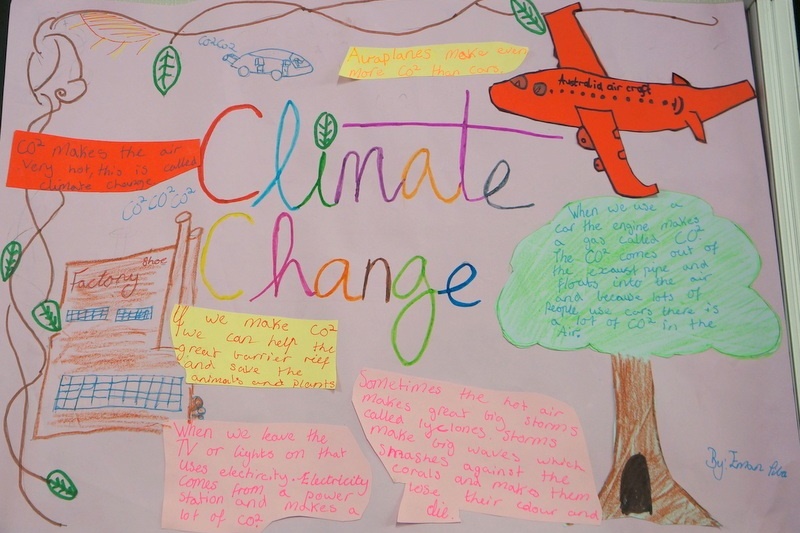 CO² CO²
Auraplanes make even
more CO² than cars.
Australia air craft
Climate
Change
CO² makes the air
very hot, this is called
climate change
CO² CO² CO²
Factory
Shoe
If we make CO²
we can help the
great barrier reef
and save the
animals and plants
When we use a
car the engine makes
a gas called CO².
The CO² comes out of
the exaust pipe and
floats into the air
and because lots of
People use cars there is
a lot of CO² in the
Air.
When we leave the
TV or lights on that
uses electricity. Electricity
comes from a power
station and makes a
lot of CO².
Sometimes the hot air
makes great big storms
called lyclones. Storms
make big waves which
smashes against the
corals and makes them
lose their colour and
die.
By: Eman